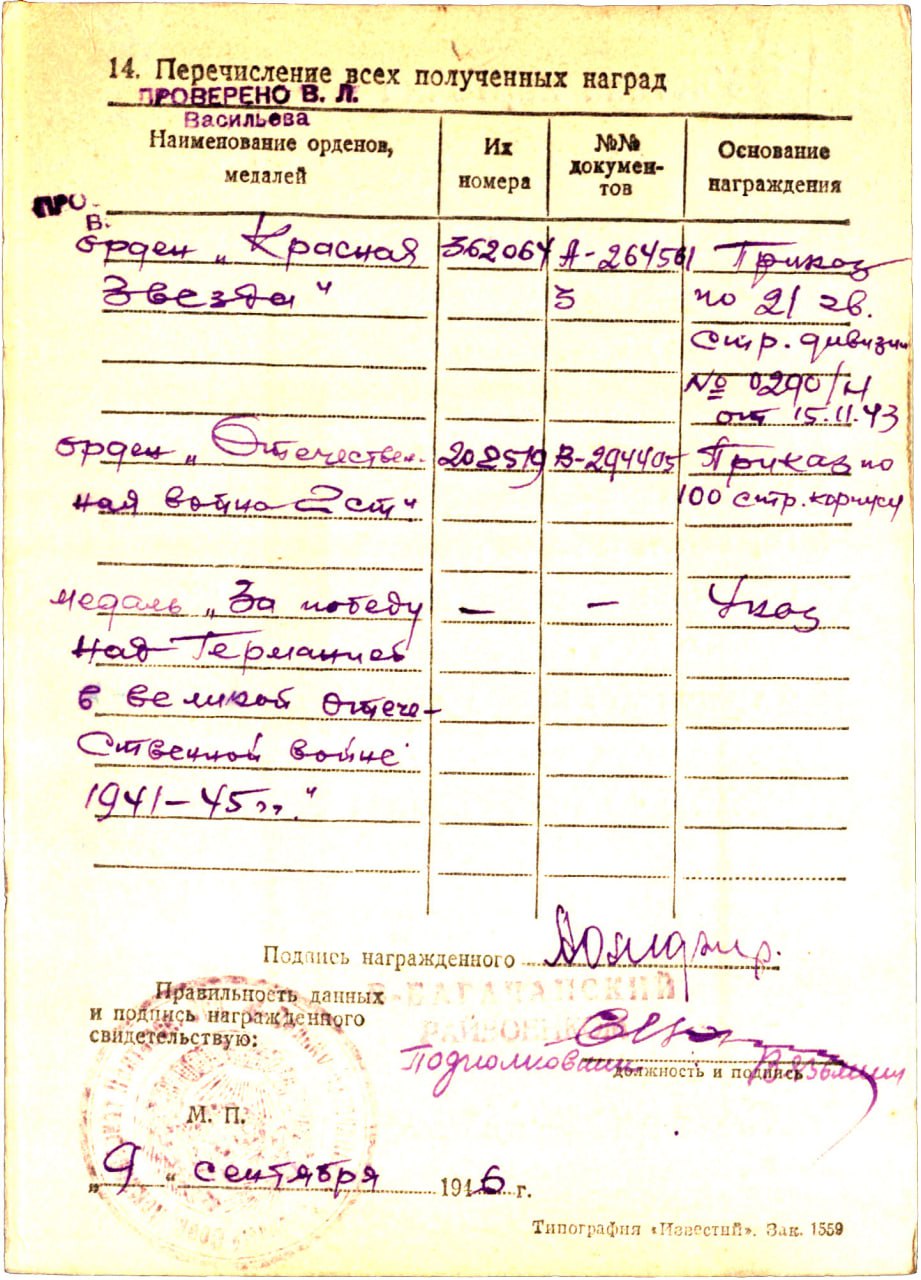 14. Перечисление всех полученных наград
ПРОВЕРЕНО В. Л.
Васильева
Наименование орденов, медалей
Их номера
№№ докумен-тов
Основание награждения
ПРО
В.
орден „Красная 362064 А-264561 Приказ
Звезда" 3 по 21 гв.
стр. дивизии
№ 0290/Н
от 15.11.43
орден „Отечествен- 202519 В-294405 Приказ по
ная война 2 ст" 100 стр. корпусу
медаль „За победу — — Указ
над Германией
в великой отече-
ственной войне
1941-45 гг."
Подпись награжденного
Правильность данных
и подпись награжденного
свидетельствую:
Б-БАГАЧАНСКИЙ
РАЙВОЕНКОМ
Подполковник
должность и подпись
М. П.
„9" сентября 1946 г.
Типография «Известий». Зак. 1559